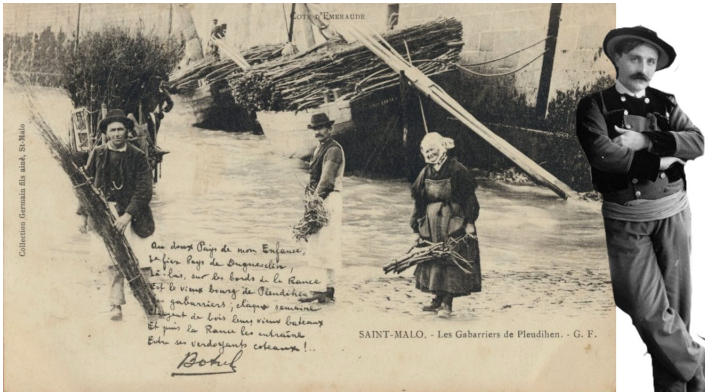 COTE D'EMERAUDE
Collection Germain fils aîné, St-Malo
Au doux Pays de mon Enfance,
Le fier Pays de Duguesclin,
Là-bas, sur les bords de la Rance
Est le vieux bourg de Pleudihen
gabarriers ; chaque semaine
de bois leurs vieux bateaux
Et puis la Rance les entraîne
Entre ses verdoyants coteaux !..
Botrel
SAINT-MALO. - Les Gabarriers de Pleudihen. - G. F.